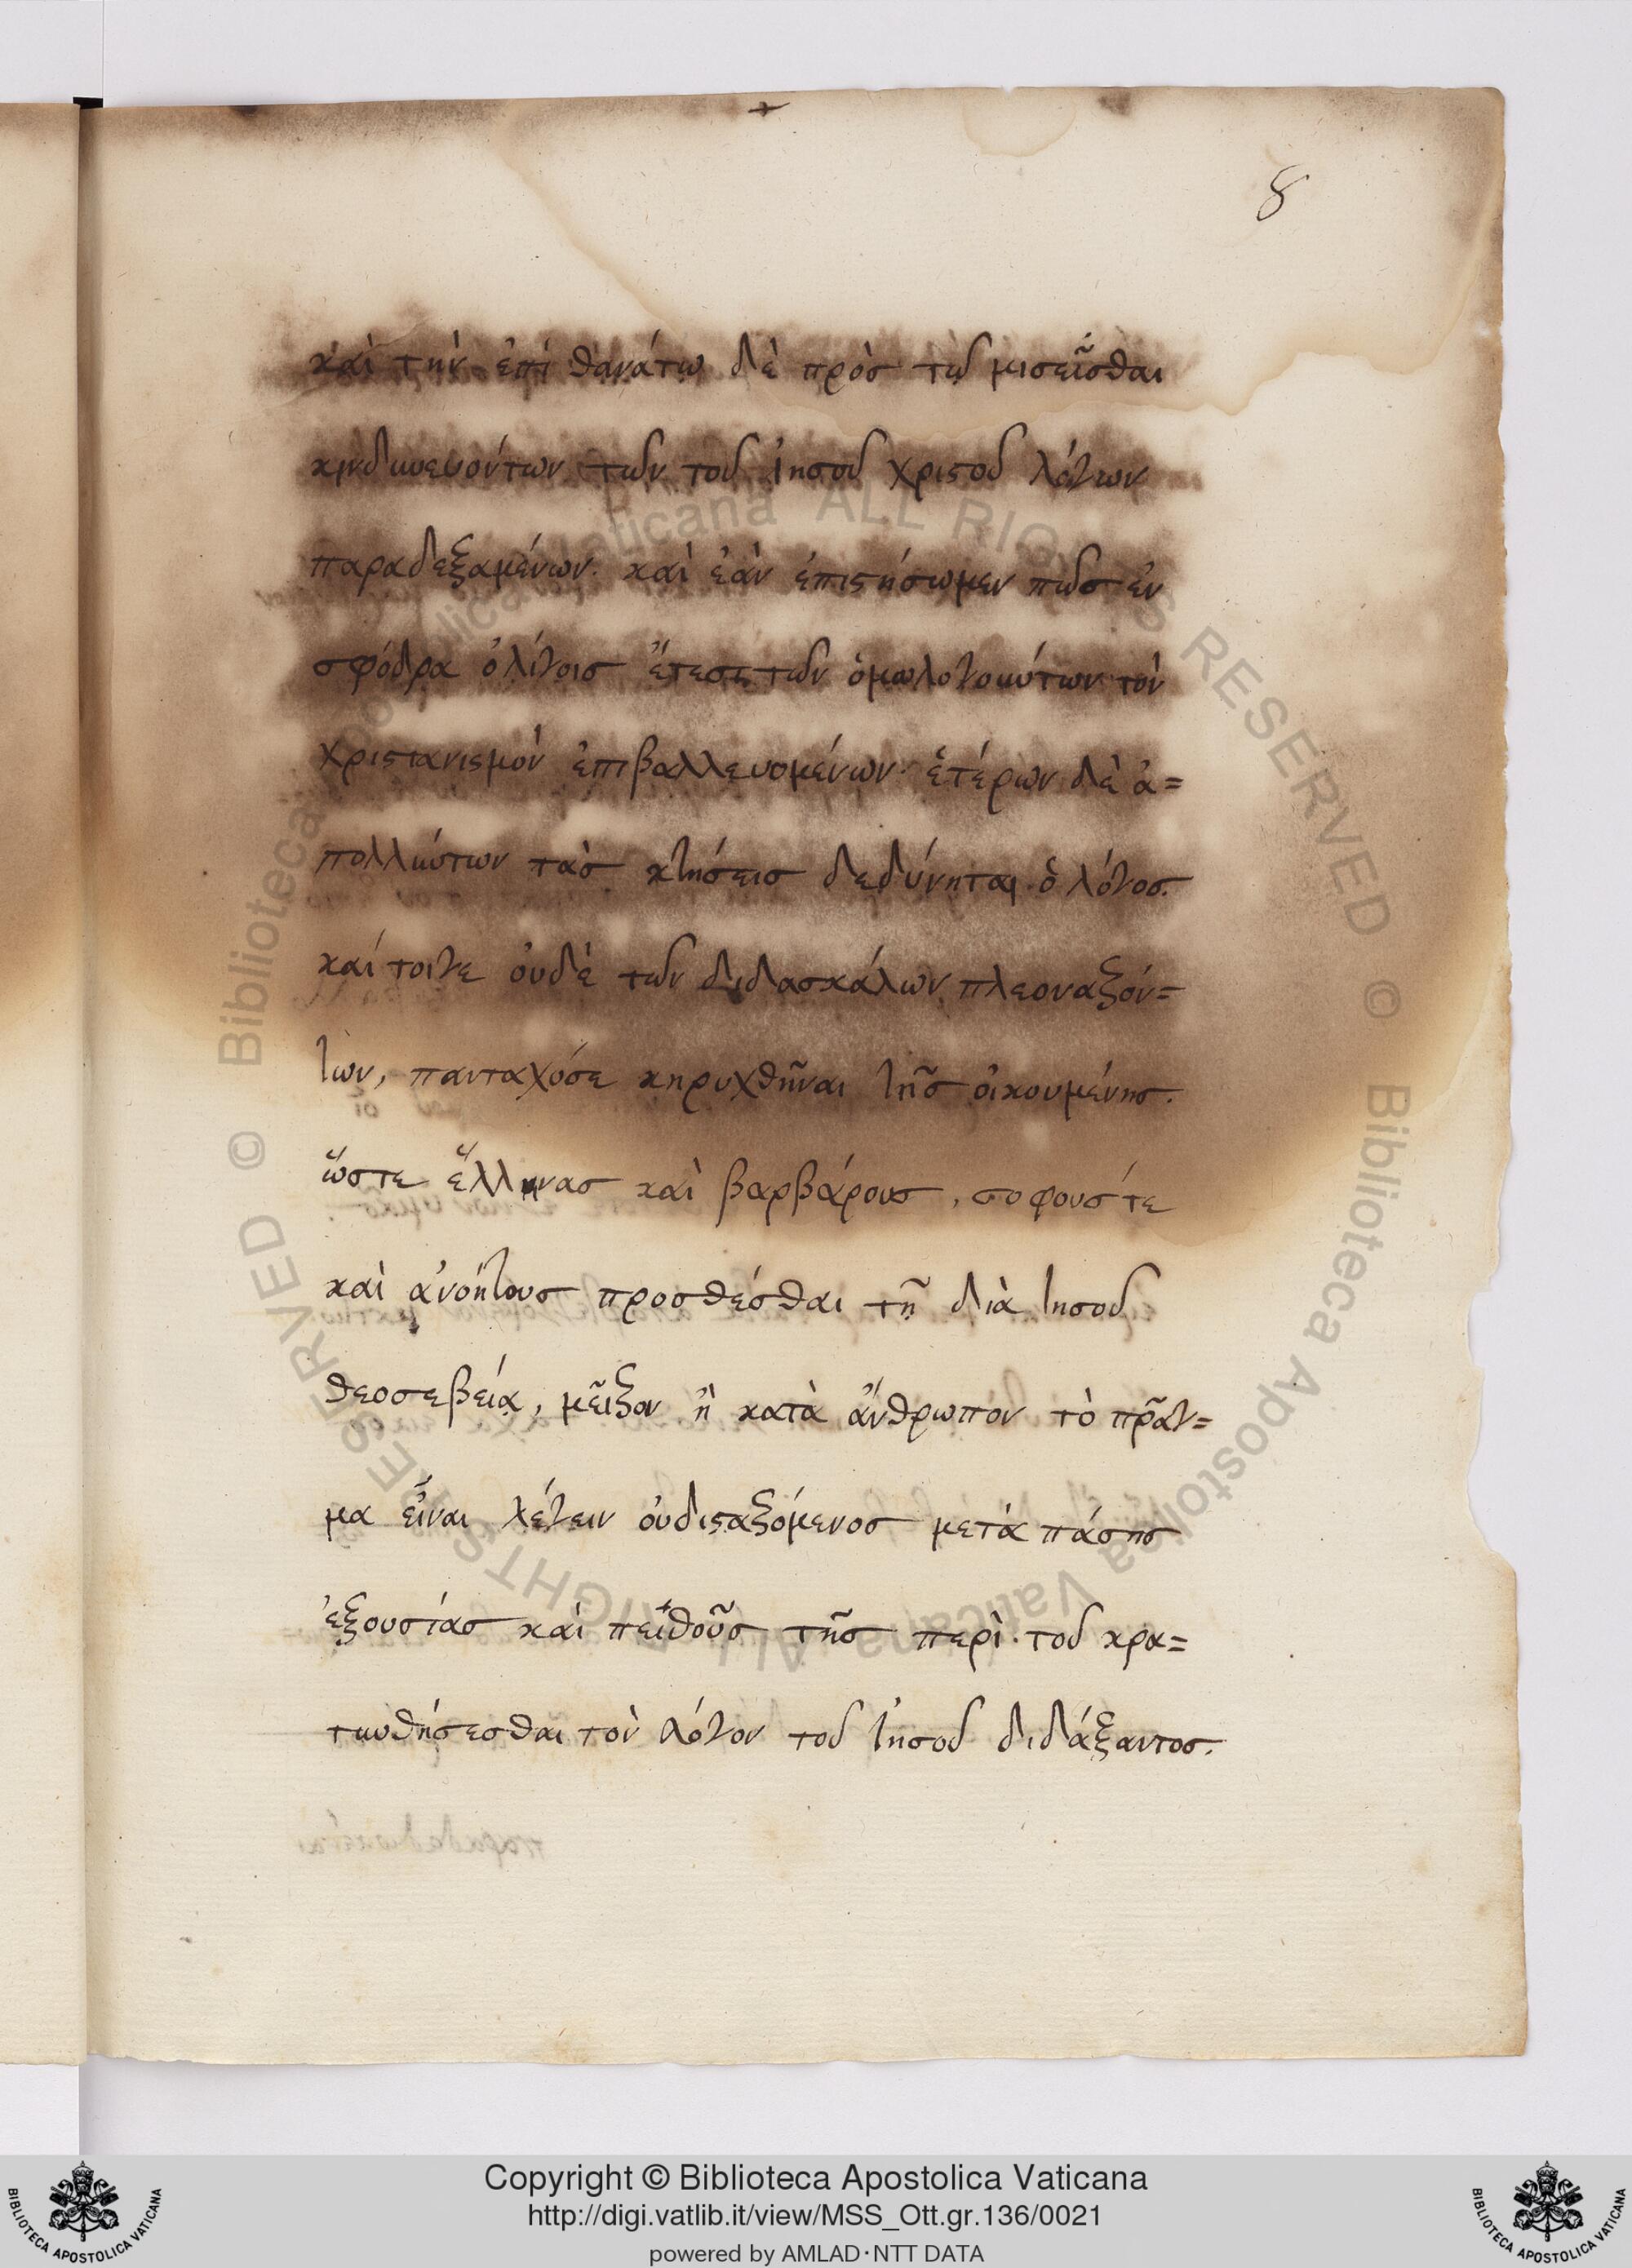 8
καὶ τὴν ἐπὶ θανάτω δὲ πρὸς τῶ μισεῖσθαι
κινδυνευόντων τῶν τοῦ ἰησοῦ χριστοῦ λόγων
παραδεξαμένων. καὶ ἐὰν ἐπιστήσωμεν πῶς ἐν
σφόδρα ὀλίγοις ἔτεσι τῶν ὁμωλογοκότων τὸν
χριστανισμὸν ἐπιβαλλευομένων. ἑτέρων δὲ ἀ=
πολλύστων τὰς κτήσεις δεδύνηται ὁ λόγος.
καί τοιγε οὐδὲ τῶν διδασκάλων πλεοναζόν=
των, πανταχόσε κηρυχθῆναι τῆς οἰκουμένης.
ὥστε ἕλληνας καὶ βαρβάρους, σοφούς τε
καὶ ἀνοήτους προσθέσθαι τῆ διὰ Ιησοῦ
θεοσεβεία, μεῖζον ἢ κατὰ ἄνθρωπον τὸ πρᾶγ=
μα εἶναι λέγειν οὐδισταζόμενος μετὰ πάσης
ἐξουσίας καὶ πειθοῦς τῆς περὶ τοῦ κρα=
τυνθήσεσθαι τὸν λόγον τοῦ Ἰησοῦ διδάξαντος.
Copyright © Biblioteca Apostolica Vaticana
http://digi.vatlib.it/view/MSS_Ott.gr.136/0021
powered by AMLAD·NTT DATA
BIBLIOTECA APOSTOLICA VATICANA
BIBLIOTECA APOSTOLICA VATICANA
© Biblioteca Apostolica Vaticana ALL RIGHTS RESERVED © Biblioteca Apostolica Vaticana ALL RIGHTS RESERVED